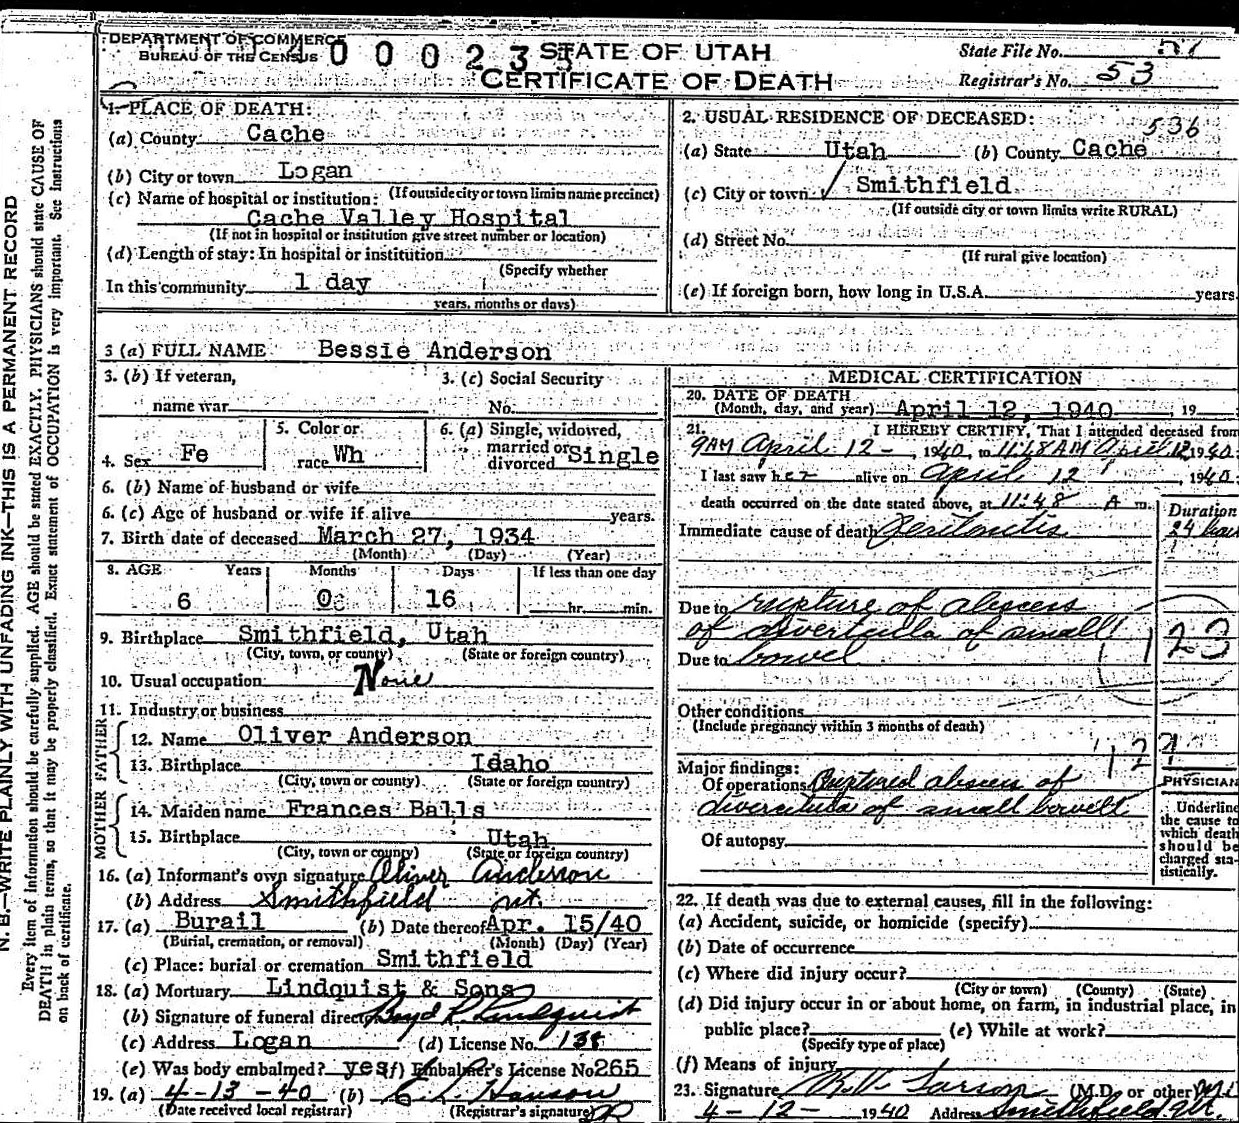 DEPARTMENT OF COMMERCE
BUREAU OF THE CENSUS
STATE OF UTAH
CERTIFICATE OF DEATH
State File No. 51
Registrar's No. 53
N. B.—WRITE PLAINLY WITH UNFADING INK—THIS IS A PERMANENT RECORD
Every item of information should be carefully supplied. AGE should be stated EXACTLY. PHYSICIANS should state CAUSE OF
DEATH in plain terms, so that it may be properly classified. Exact statement of OCCUPATION is very important. See Instructions
on back of certificate.
1. PLACE OF DEATH:
(a) County Cache
(b) City or town Logan
(If outside city or town limits name precinct)
(c) Name of hospital or institution:
Cache Valley Hospital
(If not in hospital or institution give street number or location)
(d) Length of stay: In hospital or institution
(Specify whether
In this community 1 day
years, months or days)
2. USUAL RESIDENCE OF DECEASED:
536
(a) State Utah (b) County Cache
(c) City or town Smithfield
(If outside city or town limits write RURAL)
(d) Street No.
(If rural give location)
(e) If foreign born, how long in U.S.A. years
3 (a) FULL NAME Bessie Anderson
3. (b) If veteran,
name war
3. (c) Social Security
No.
4. Sex Fe
5. Color or
race Wh
6. (a) Single, widowed,
married or
divorced Single
6. (b) Name of husband or wife
6. (c) Age of husband or wife if alive years.
7. Birth date of deceased March 27, 1934
(Month) (Day) (Year)
8. AGE Years Months Days If less than one day
6 0 16 hr. min.
9. Birthplace Smithfield, Utah
(City, town, or county) (State or foreign country)
10. Usual occupation None
11. Industry or business
FATHER
12. Name Oliver Anderson
13. Birthplace Idaho
(City, town or county) (State or foreign country)
MOTHER
14. Maiden name Frances Balls
15. Birthplace Utah
(City, town or county) (State or foreign country)
16. (a) Informant's own signature Oliver Anderson
(b) Address Smithfield ut.
17. (a) Burail (b) Date thereof Apr. 15/40
(Burial, cremation, or removal) (Month) (Day) (Year)
(c) Place: burial or cremation Smithfield
18. (a) Mortuary Lindquist & Sons
(b) Signature of funeral director Boyd R. Lindquist
(c) Address Logan (d) License No. 138
(e) Was body embalmed? yes (f) Embalmer's License No 265
19. (a) 4-13-40 (b) Hanson
(Date received local registrar) (Registrar's signature)
MEDICAL CERTIFICATION
20. DATE OF DEATH
(Month, day, and year) April 12, 1940, 19
21. I HEREBY CERTIFY, That I attended deceased from
9AM April 12 -, 1940, to 11:48AM April 12 1940.
I last saw her alive on April 12, 1940.
death occurred on the date stated above, at 11:48 A m.
Duration
Immediate cause of death Peritonitis
24 hour
Due to rupture of abscess
of diverticula of small
Due to bowel
123
Other conditions
(Include pregnancy within 3 months of death)
Major findings:
Of operations Ruptured abscess of
diverticula of small bowell
Of autopsy
PHYSICIAN
Underline
the cause to
which death
should be
charged sta-
tistically.
22. If death was due to external causes, fill in the following:
(a) Accident, suicide, or homicide (specify)
(b) Date of occurrence
(c) Where did injury occur?
(City or town) (County) (State)
(d) Did injury occur in or about home, on farm, in industrial place, in
public place? (e) While at work?
(Specify type of place)
(f) Means of injury
23. Signature Larson (M.D. or other) MD
4-12-1940 Address Smithfield, Ut.